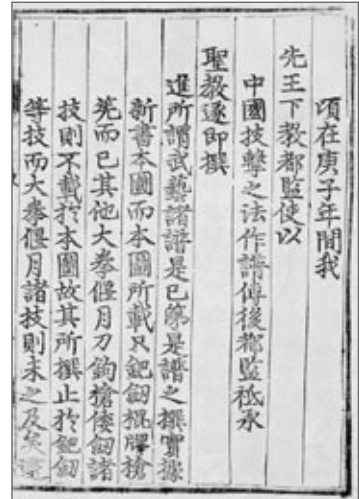 頃在庚子年間我
先王下教都監使以
中國技擊之法作譜傳後都監祗承
聖教遂即撰
進所謂武藝諸譜是已第是譜之撰實據
新書本圖而本圖所載只鈀劒棍膠槍
筅而已其他大拳偃月刀鉤槍倭劒諸
技則不載於本圖故其所撰止於鈀劒
等技而大拳偃月諸技則未之及矣